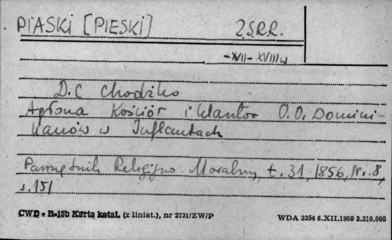 PIASKI [PIESKI] Z.S.R.R.
-XVII-XVIII w
D.C Chodźko
Agłona Kościół i klasztor O.O. Domini-
kanów w Inflantach
Pamiętnik Religijno-Moralny, t. 31, 1856, Nr. 8,
s. 151
CWD • H-15b Karta katal. (z liniat.), nr 2731/ZW/P WDA 3354 6.XII.1960 3.310.000